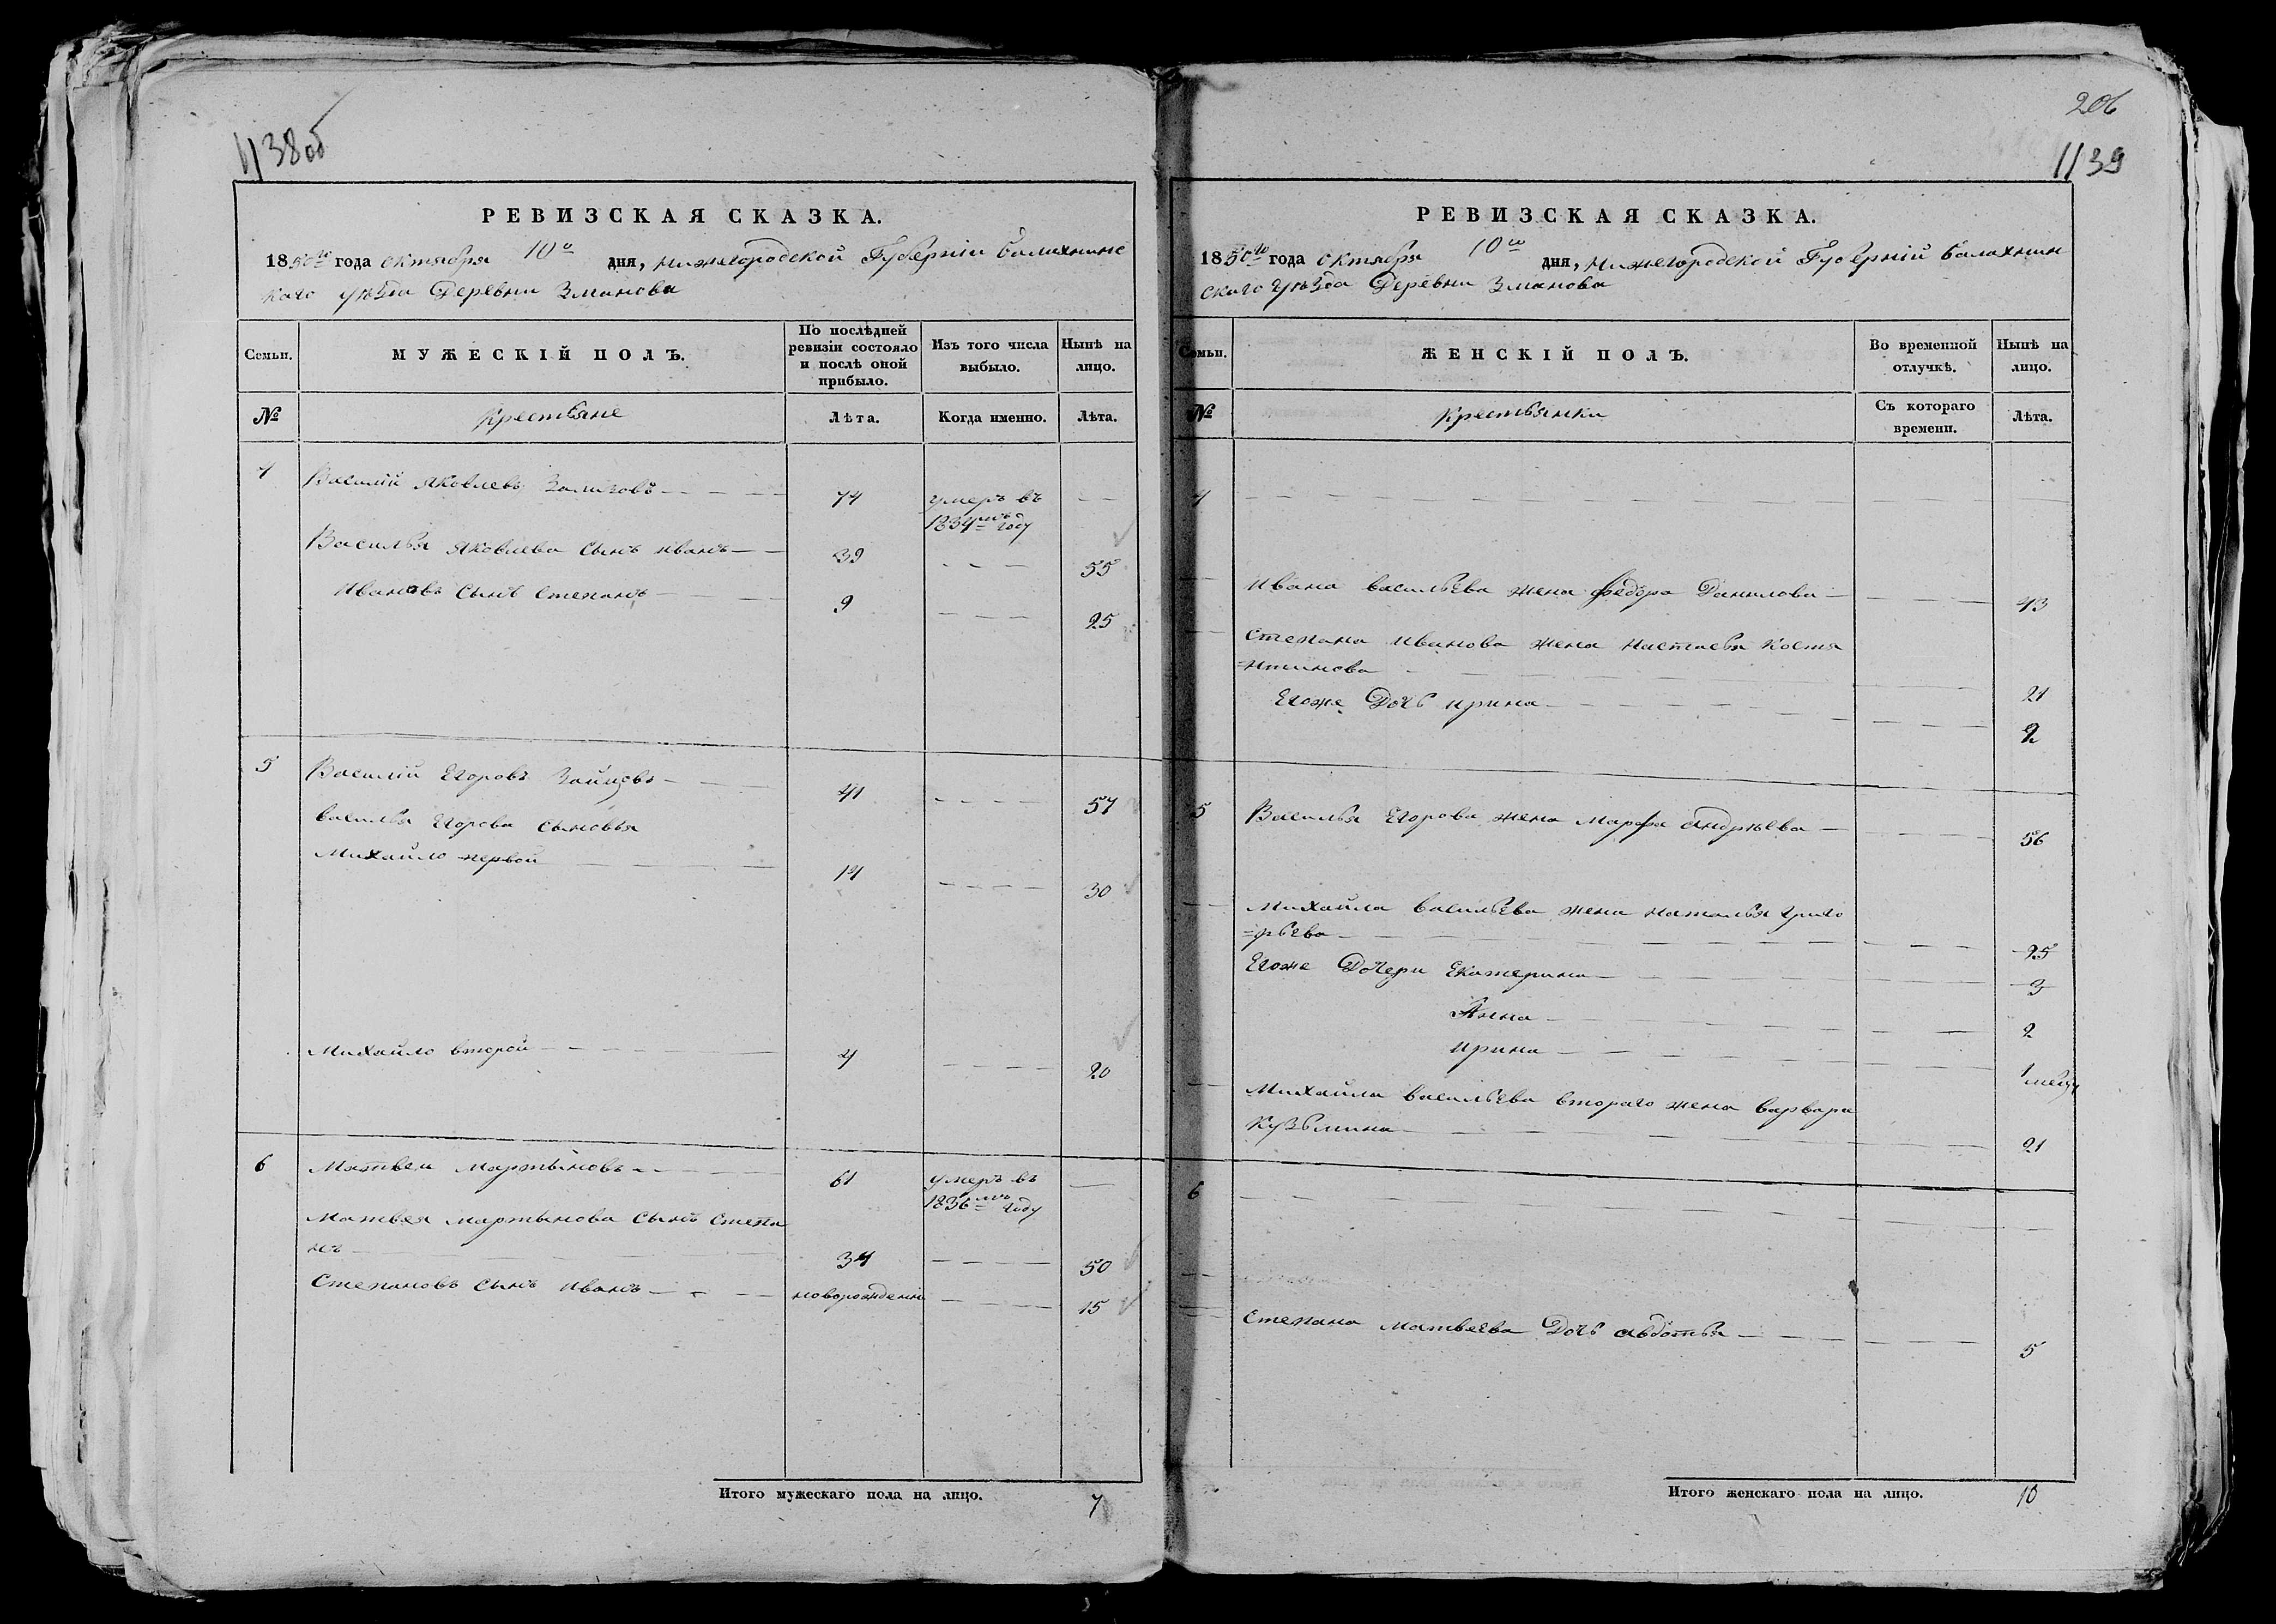 1138об
РЕВИЗСКАЯ СКАЗКА.
1850го года октября 10го дня, Нижегородской Губерніи балахнинс
каго уѣзда Деревни Зманова
Семьи. МУЖЕСКІЙ ПОЛЪ. По послѣдней ревизіи состояло и послѣ оной прибыло. Изъ того числа выбыло. Нынѣ на лицо.
№ Крестьяне Лѣта. Когда именно. Лѣта.
4 Василій Яковлевъ 74 умеръ въ 1834мъ году
Василья Яковлева сынъ иванъ 39 55
Ивановъ сынъ Степанъ 9 25
5 Василій Егоровъ Зайцовъ 41 57
Василья Егорова сыновья
Михайло первой 14 30
Михайло второй 4 20
6 Матвеи Мартыновъ 61 умеръ въ 1836мъ году
Матвея Мартынова сынъ Степа
нъ 34 50
Степановъ сынъ иванъ новорожденны 15
Итого мужескаго пола на лицо. 7
206
1139
РЕВИЗСКАЯ СКАЗКА.
1850го года октября 10го дня, Нижегородской Губерній балахнин
скаго уѣзда Деревни Зманова
Семьи. ЖЕНСКІЙ ПОЛЪ. Во временной отлучкѣ. Нынѣ на лицо.
№ Крестьянки Съ котораго времени. Лѣта.
4
Ивана васильева жена федора Данилова 43
Степана иванова жена настасья костя
=нтинова 21
Егоже Дочь ирина 2
5 Василья Егорова жена Марфа андрѣева 56
Михайла васильева жена наталья григо
=рьева 25
Егоже Дочери Екатерина 3
Анна 2
ирина 1 месяц
Михайла васильева втораго жена варвара
Кузьмина 21
6
Степана матвеева Дочь авдотья 5
Итого женскаго пола на лицо. 10